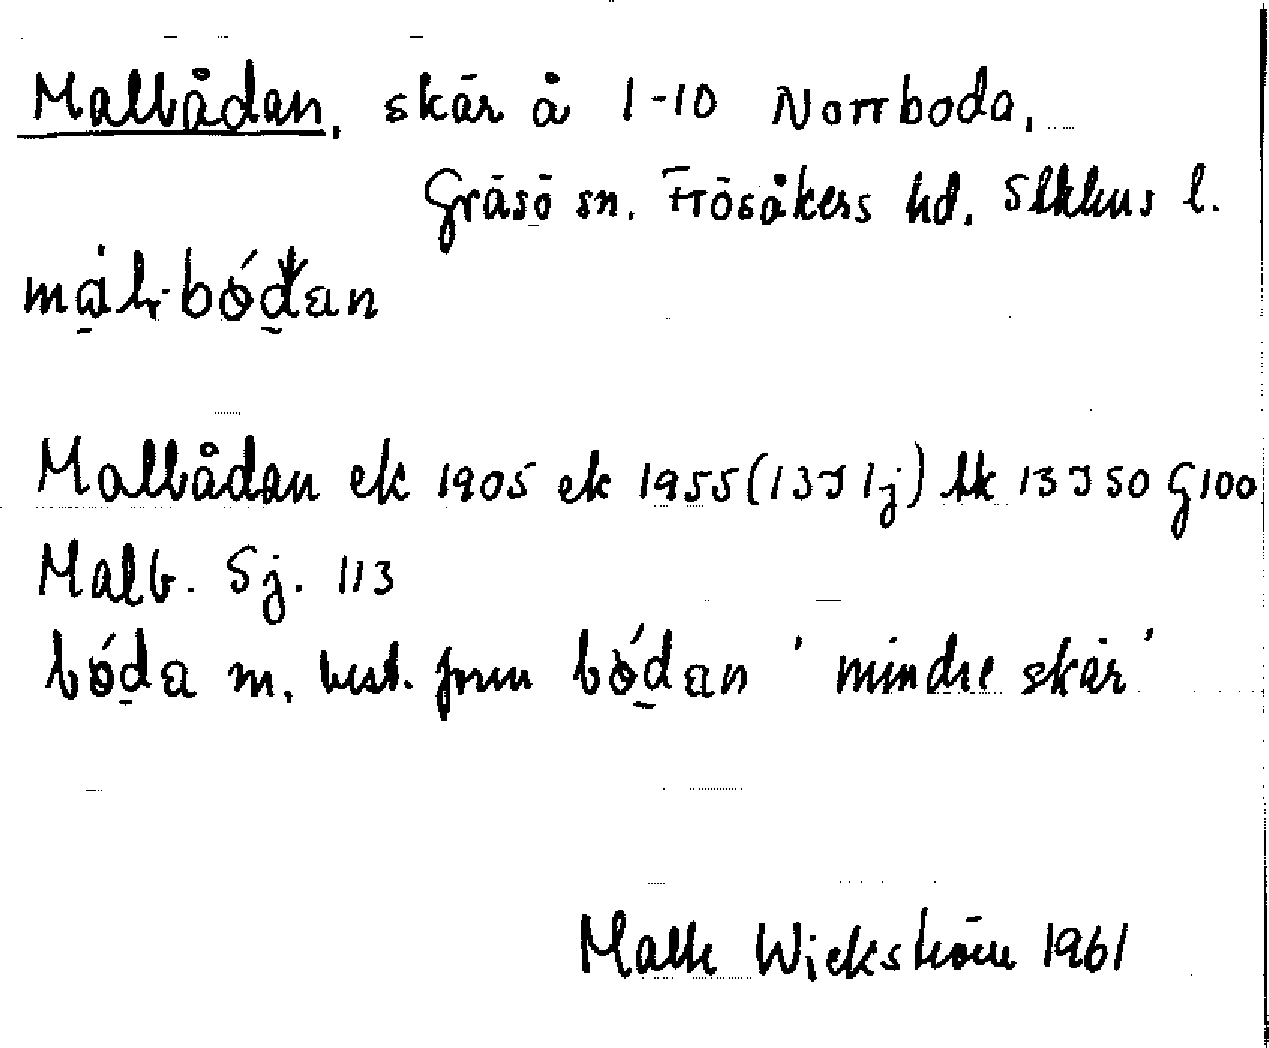 Malbådan, skär å 1-10 Norrboda,
Gräsö sn. Frösåkers hd. Sthlms l.
målr-bódan
Malbådan ek 1905 ek 1955 (13J 1j) lk 13J50 G100
Malb. Sj. 113
bóda m. best. form bódan 'mindre skär'
Wickström 1961